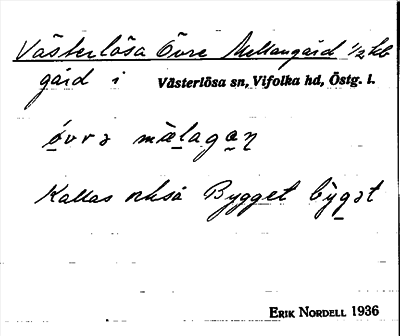 Västerlösa Övre Mellangård 1/2 kb
gård i Västerlösa sn, Vifolka hd, Östg. l.
óvrə mælagaṇ
Kallas också Bygget býgət
ERIK NORDELL 1936